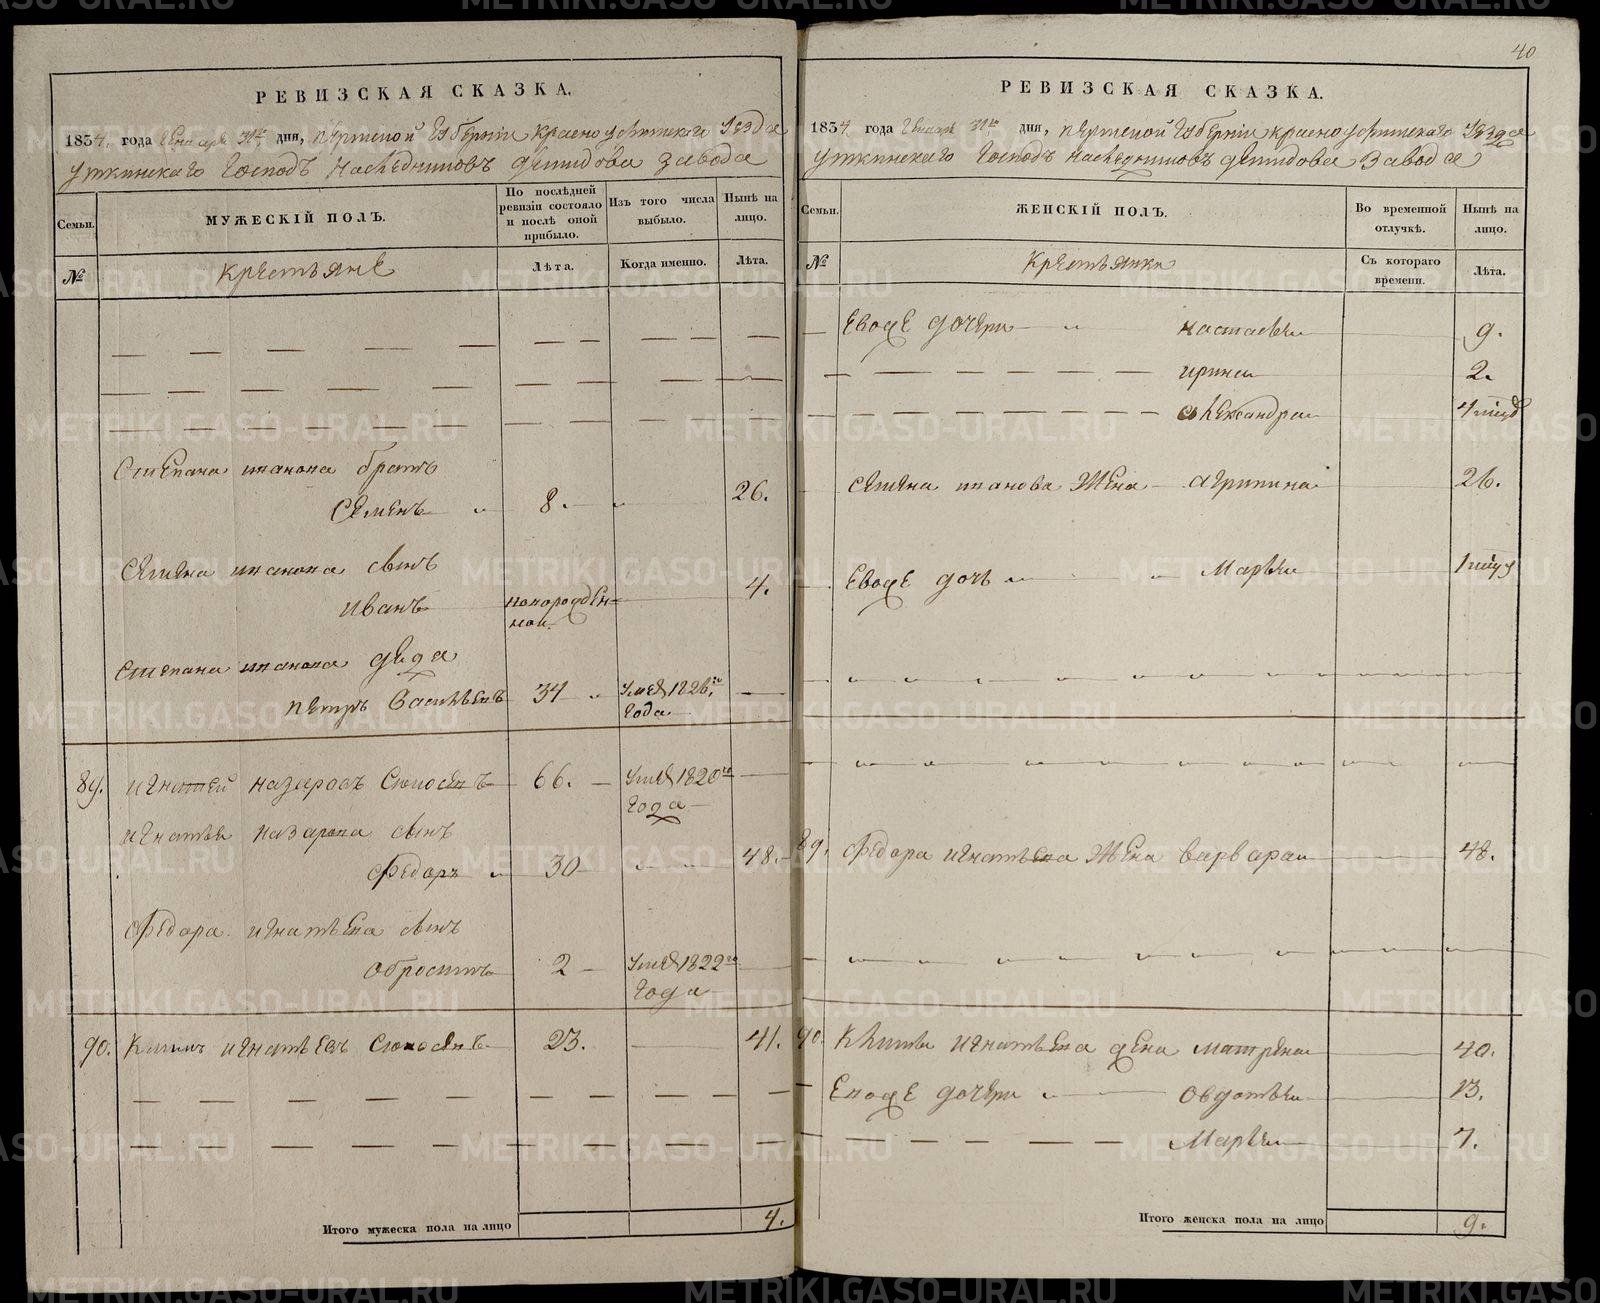 40
РЕВИЗСКАЯ СКАЗКА.
1834. года Генваря 31го дня, Пермской Губерніи Красноуфимскаго Уезда
Уткинскаго Господъ Наследниковъ Демидова Завода
Семьи.
МУЖЕСКІЙ ПОЛЪ.
По послѣдней ревизіи состояло и послѣ оной прибыло.
Изъ того числа выбыло.
Нынѣ на лицо.
№
Крестьяне
Лѣта.
Когда именно.
Лѣта.
Степана иванова братъ
Семенъ 8. 26.
Семена иванова сынъ
Иванъ новорожденной 4.
Степана иванова дедя
Петръ Васильевъ 34 Умре 1826го Года
89. Игнатей Назаровъ 66. Умре 1820го Года
Игнатья Назарова сынъ
Федоръ 30 48.
Федора Игнатьева сынъ
2 Умре 1822го Года
90. Игнатьевъ 23. 41.
Итого мужеска пола на лицо 4.
РЕВИЗСКАЯ СКАЗКА.
1834 года Генваря 31го дня, Пермской Губерніи Красноуфимскаго Уезда
Уткинскаго Господъ Наследниковъ Демидова Завода
Семьи.
ЖЕНСКІЙ ПОЛЪ.
Во временной отлучкѣ.
Нынѣ на лицо.
№
Крестьянки
Съ котораго времени.
Лѣта.
Евоже дочери Настасья 9.
Ирина 2.
Александра 4
Семена иванова Жена Агрипина 26.
Евоже дочь Марья 1
89. Федора Игнатьева Жена Варвара 48.
90. Игнатьева жена Матрена 40.
Евоже дочери Овдотья 13.
Марья 7.
Итого женска пола на лицо 9.
METRIKI.GASO-URAL.RU